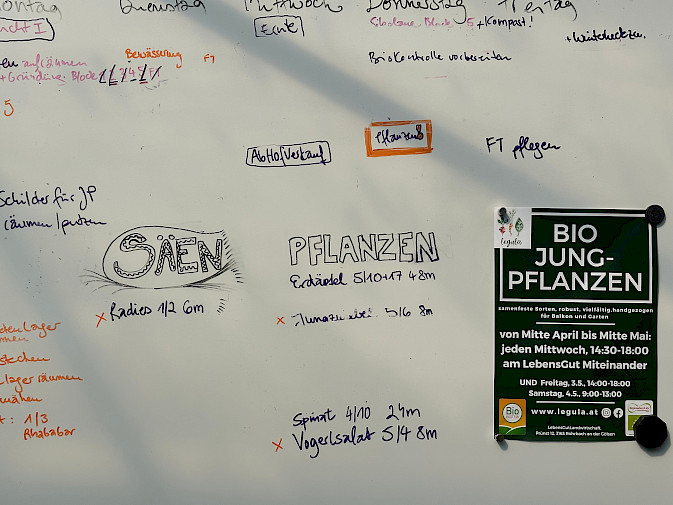 Dienstag
Mittwoch
Donnerstag
Freitag
Ernte
Block 5 + Kompost!
+Wintercheckzu.
Biokontrolle vorbereiten
Bewässerung FT
aufräumen
+Gründüng. Block 1 2 3 4 5 FT
5
AbHofVerkauf
Pflanzen
FT pflegen
Schilder für JP
räumen/putzen
SÄEN
x Radies 1/2 6m
PFLANZEN
Erdäpfel 5/10+17 48m
x 5/6 8m
Spinat 4/10 24m
x Vogerlsalat 5/4 8m
lager
stechen
lager räumen
mähen
: 1/3
Rhababar
legula
BIO
JUNG-
PFLANZEN
samenfeste Sorten, robust, vielfältig, handgezogen
für Balkon und Garten
von Mitte April bis Mitte Mai:
jeden Mittwoch, 14:30-18:00
am LebensGut Miteinander
UND Freitag, 3.5., 14:00-18:00
Samstag, 4.5., 9:00-13:00
Bio
www.legula.at
LebensGutLandwirtschaft,
Prünst 12, 3163 Rohrbach an der Gölsen